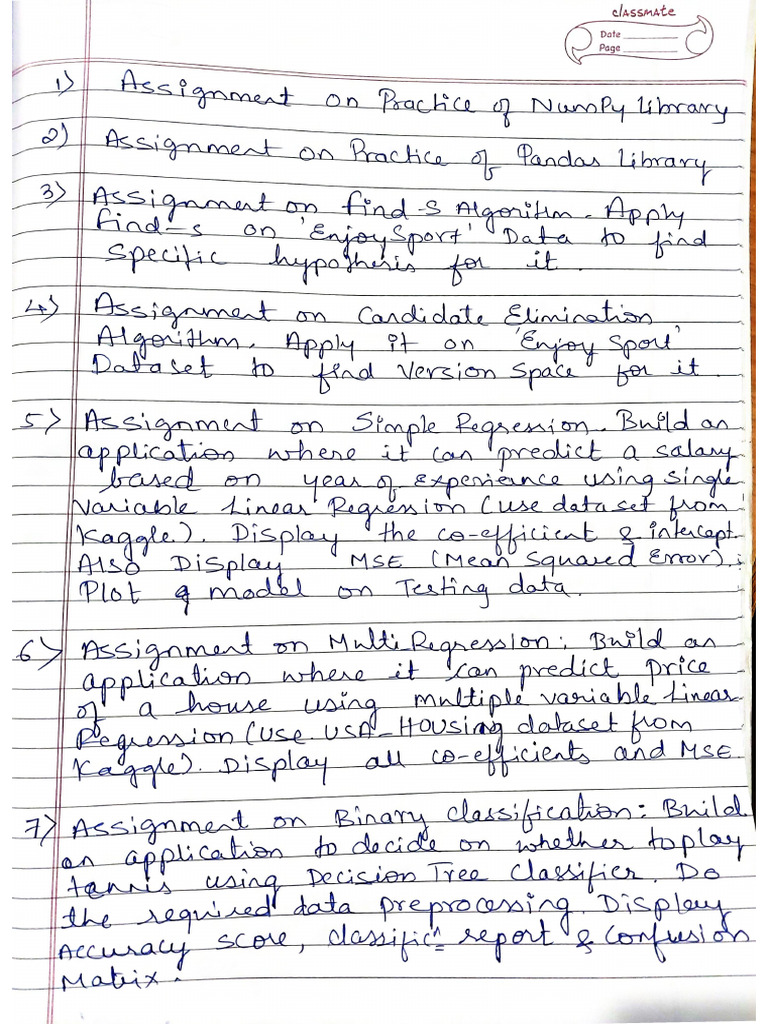 classmate
Date
Page
1) Assignment on Practice of NumPy Library
2) Assignment on Practice of Pandas Library
3) Assignment on find-S Algorithm. Apply
find-s on 'EnjoySport' Data to find
Specific hypothesis for it.
4) Assignment on Candidate Elimination
Algorithm. Apply it on 'Enjoy Sport'
Dataset to find Version Space for it.
5) Assignment on Simple Regression. Build an
application where it can predict a salary
based on year of experience using single
Variable Linear Regression (use dataset from
Kaggle). Display the co-efficient & intercept.
Also Display MSE (Mean Squared Error).:
Plot model on Testing data.
6) Assignment on Multi Regression: Build an
application where it can predict price
of a house using multiple variable Linear
Regression (use USA_Housing dataset from
Kaggle). Display all co-efficients and MSE
7) Assignment on Binary Classification: Build
an application to decide on whether to play
tennis using Decision Tree Classifier. Do
the required data preprocessing. Display
Accuracy score, classificⁿ report & Confusion
Matrix.